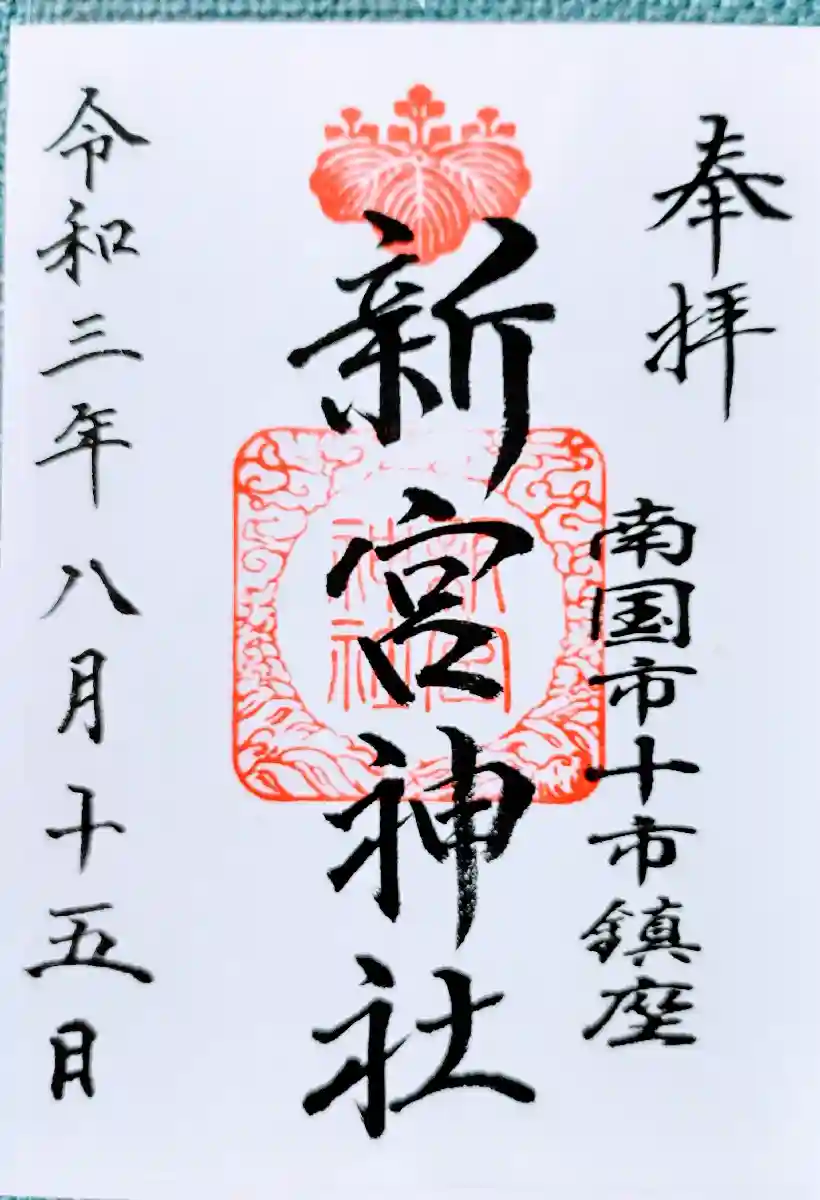 奉拝
南国市十市鎮座
新宮神社
新宮
神社
令和三年八月十五日